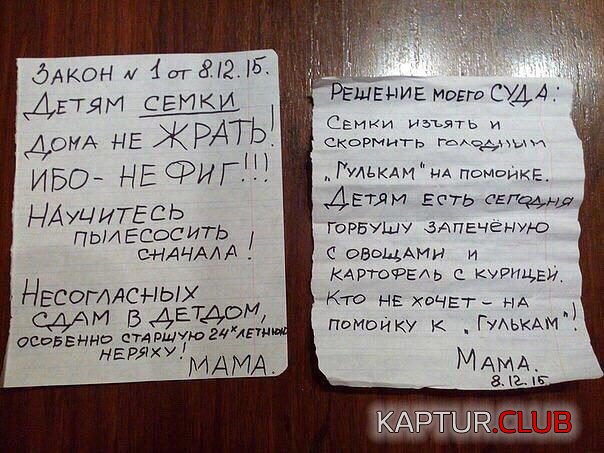 ЗАКОН N 1 от 8.12.15.
ДЕТЯМ СЕМКИ
ДОМА НЕ ЖРАТЬ!
ИБО - НЕ ФИГ!!!
НАУЧИТЕСЬ
ПЫЛЕСОСИТЬ
СНАЧАЛА!
НЕСОГЛАСНЫХ
СДАМ В ДЕТДОМ,
ОСОБЕННО СТАРШУЮ 24х ЛЕТНЮЮ
НЕРЯХУ!
МАМА.
РЕШЕНИЕ МОЕГО СУДА:
СЕМКИ ИЗЪЯТЬ И
СКОРМИТЬ ГОЛОДНЫМ
„ГУЛЬКАМ" НА ПОМОЙКЕ.
ДЕТЯМ ЕСТЬ СЕГОДНЯ
ГОРБУШУ ЗАПЕЧЁНУЮ
С ОВОЩАМИ И
КАРТОФЕЛЬ С КУРИЦЕЙ.
КТО НЕ ХОЧЕТ - НА
ПОМОЙКУ К „ГУЛЬКАМ"!
МАМА.
8.12.15.
KAPTUR.CLUB